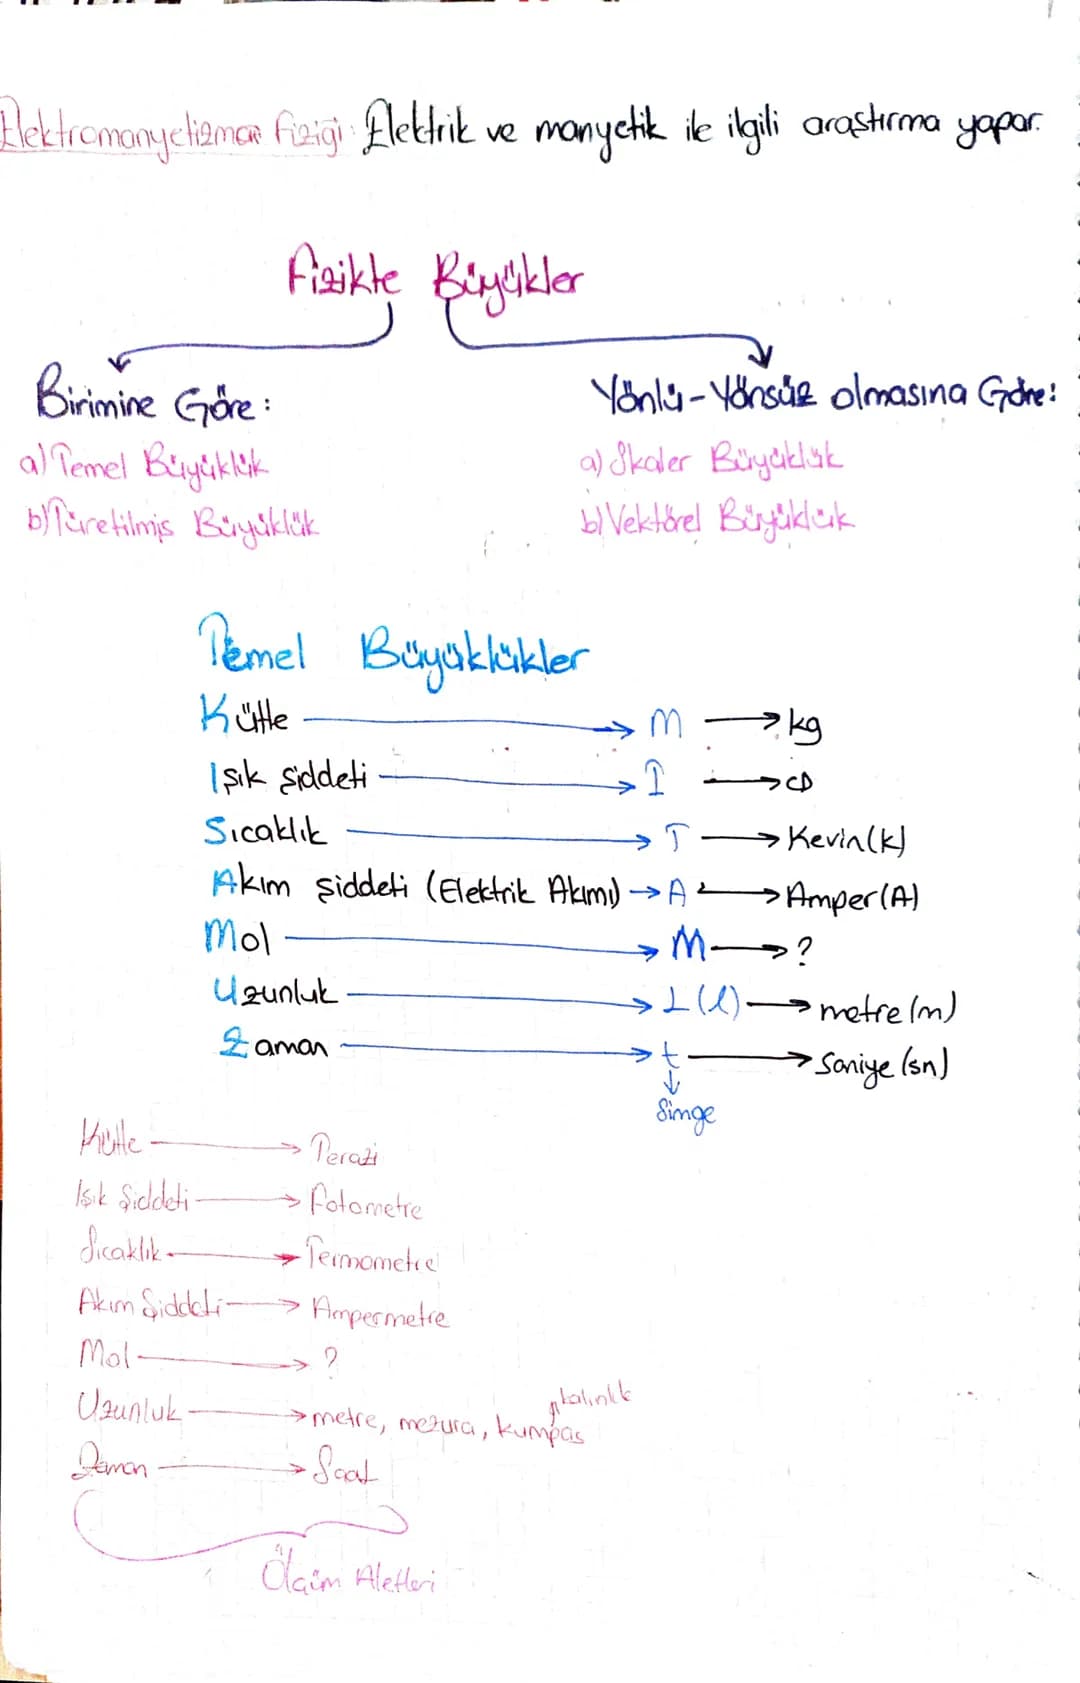 Elektromanyetizman fiziği: Elektrik ve manyetik ile ilgili araştırma yapar.
Fizikte Büyükler
Birimine Göre:
a) Temel Büyüklük
b) Türetilmiş Büyüklük
Yönlü-Yönsüz olmasına Göre:
a) Skaler Büyüklük
b) Vektörel Büyüklük
Temel Büyüklükler
Kütle → m → kg
Işık şiddeti → I → CD
Sıcaklık → T → Kevin(k)
Akım şiddeti (Elektrik Akımı) → A → Amper(A)
Mol → M → ?
Uzunluk → L(l) → metre(m)
Zaman → t → Saniye(sn)
↓
Simge
Kütle → Terazi
Işık Şiddeti → Fotometre
Sıcaklık → Termometre
Akım Şiddeti → Ampermetre
Mol → ?
kalınlık
Uzunluk → metre, mezura, kumpas
Zaman → Saat
Ölçüm Aletleri